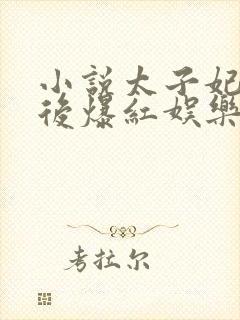 小説太子妃
後爆紅娛樂
考拉尔